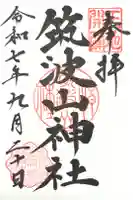 奉拝
筑波山神社
令和七年九月二十日